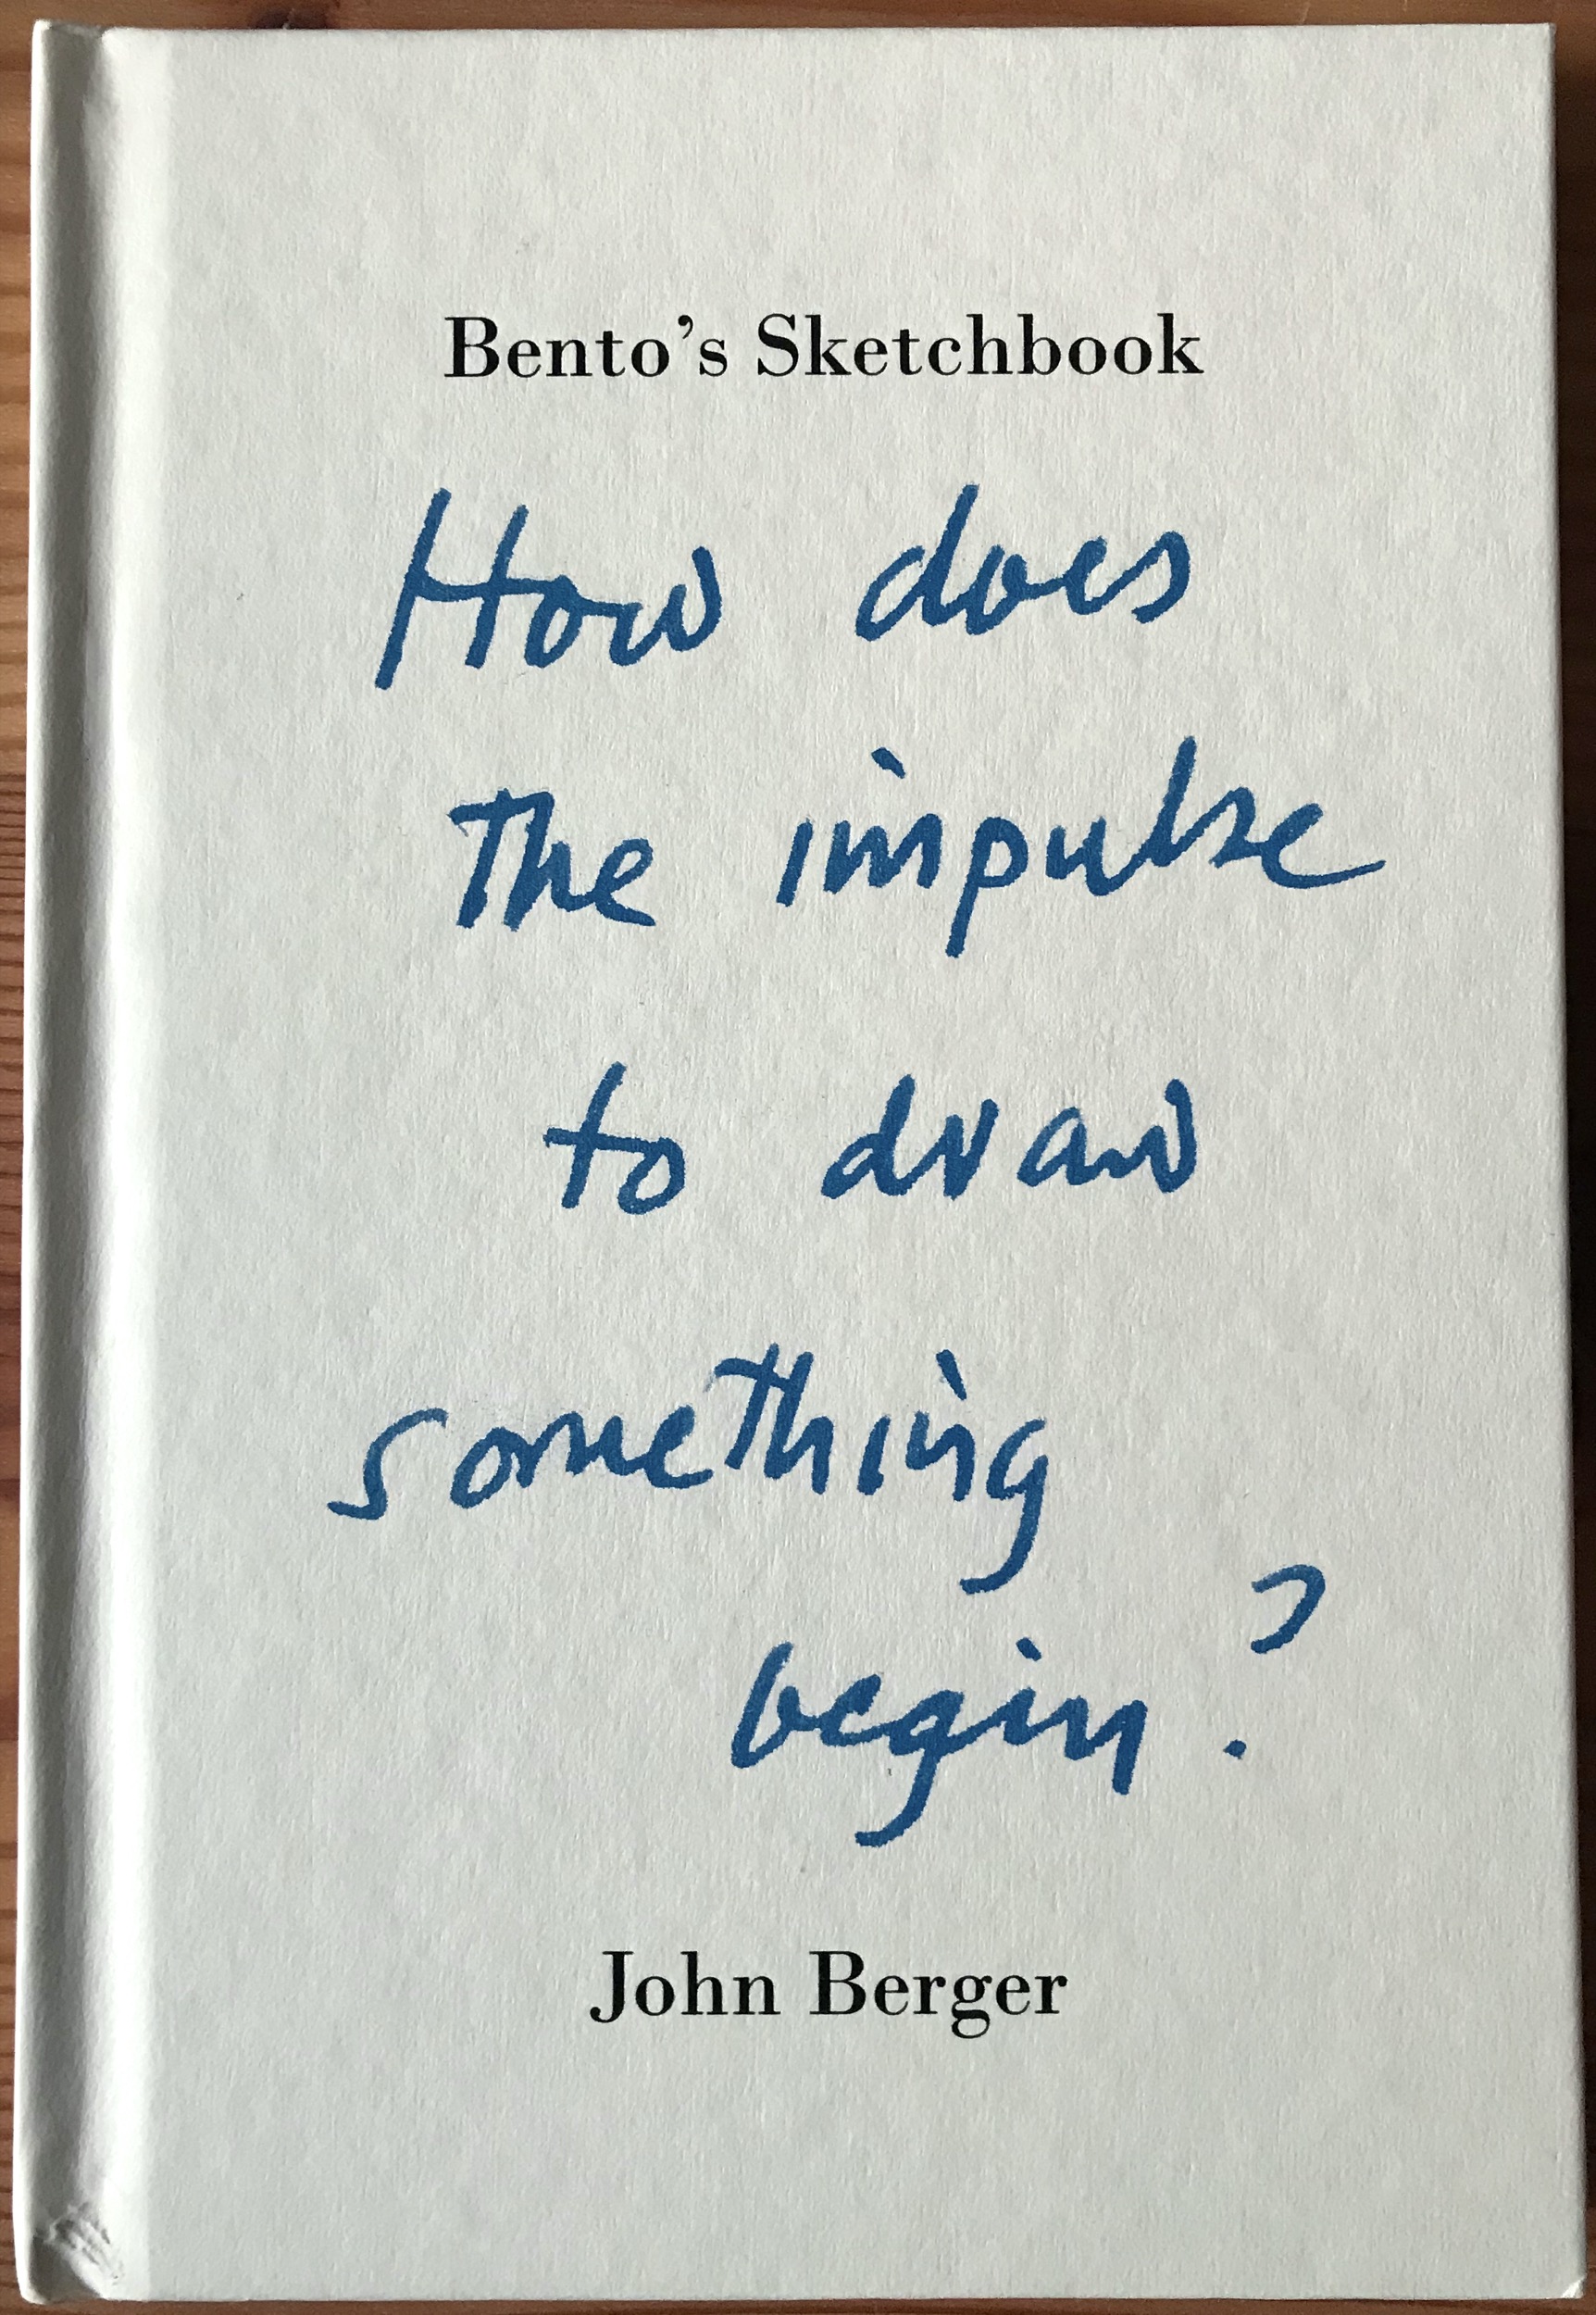 Bento’s Sketchbook
How does
the impulse
to draw
something
begin?
John Berger